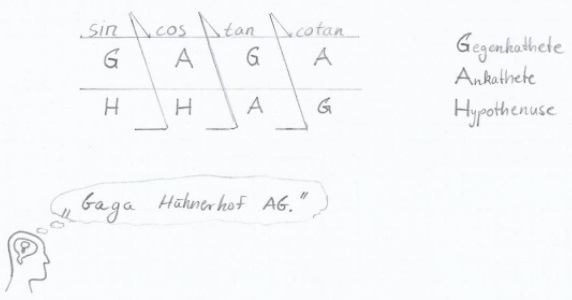 sin cos tan cotan
G A G A
H H A G
Gegenkathete
Ankathete
Hypothenuse
„Gaga Hühnerhof AG.”